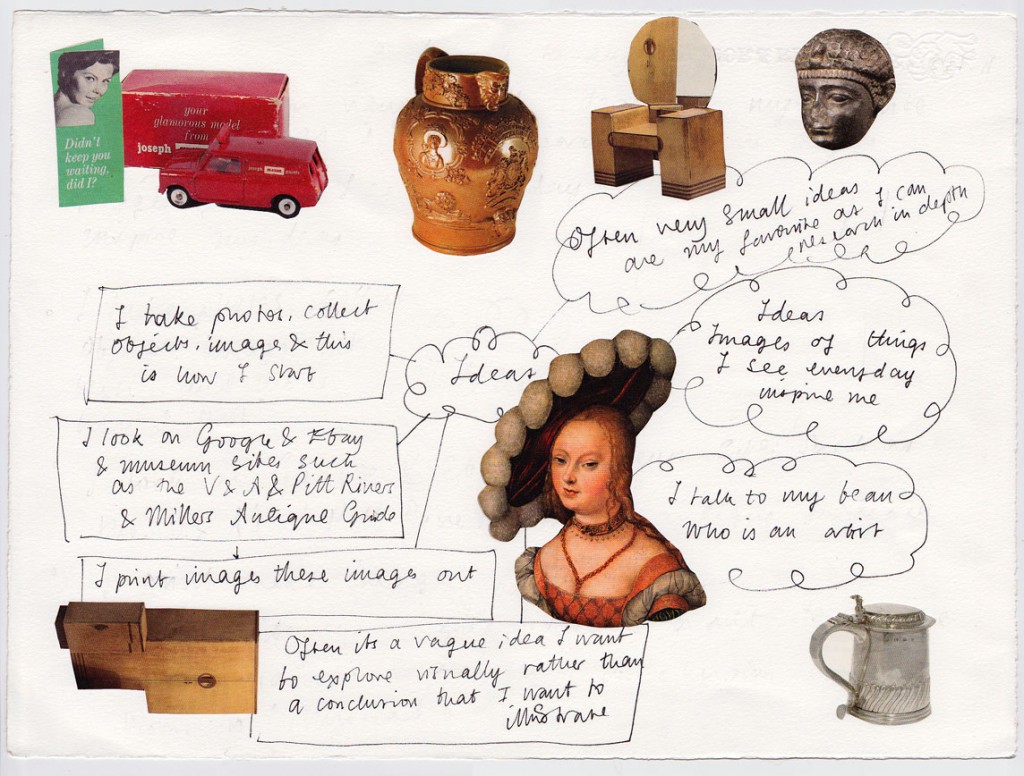 Didn't
keep you
waiting,
did I?
your
glamorous model
from
joseph
Often very small ideas
are my favorite as I can
research in depth
I take photos, collect
objects, image & this
is how I start
Ideas
Ideas
Images of things
I see everyday
inspire me
I look on Google & Ebay
& museum sites such
as the V & A & Pitt Rivers
& Millers Antique Guide
I talk to my beau
Who is an artist
I print images these images out
Often its a vague idea I want
to explore visually rather than
a conclusion that I want to
illustrate